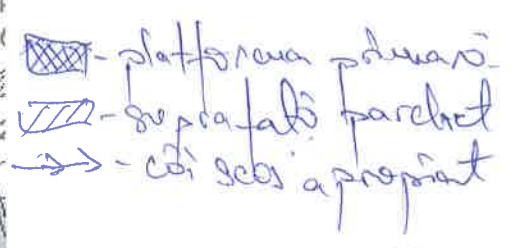 - platforma primară
- suprafață parchet
- căi scos apropiat